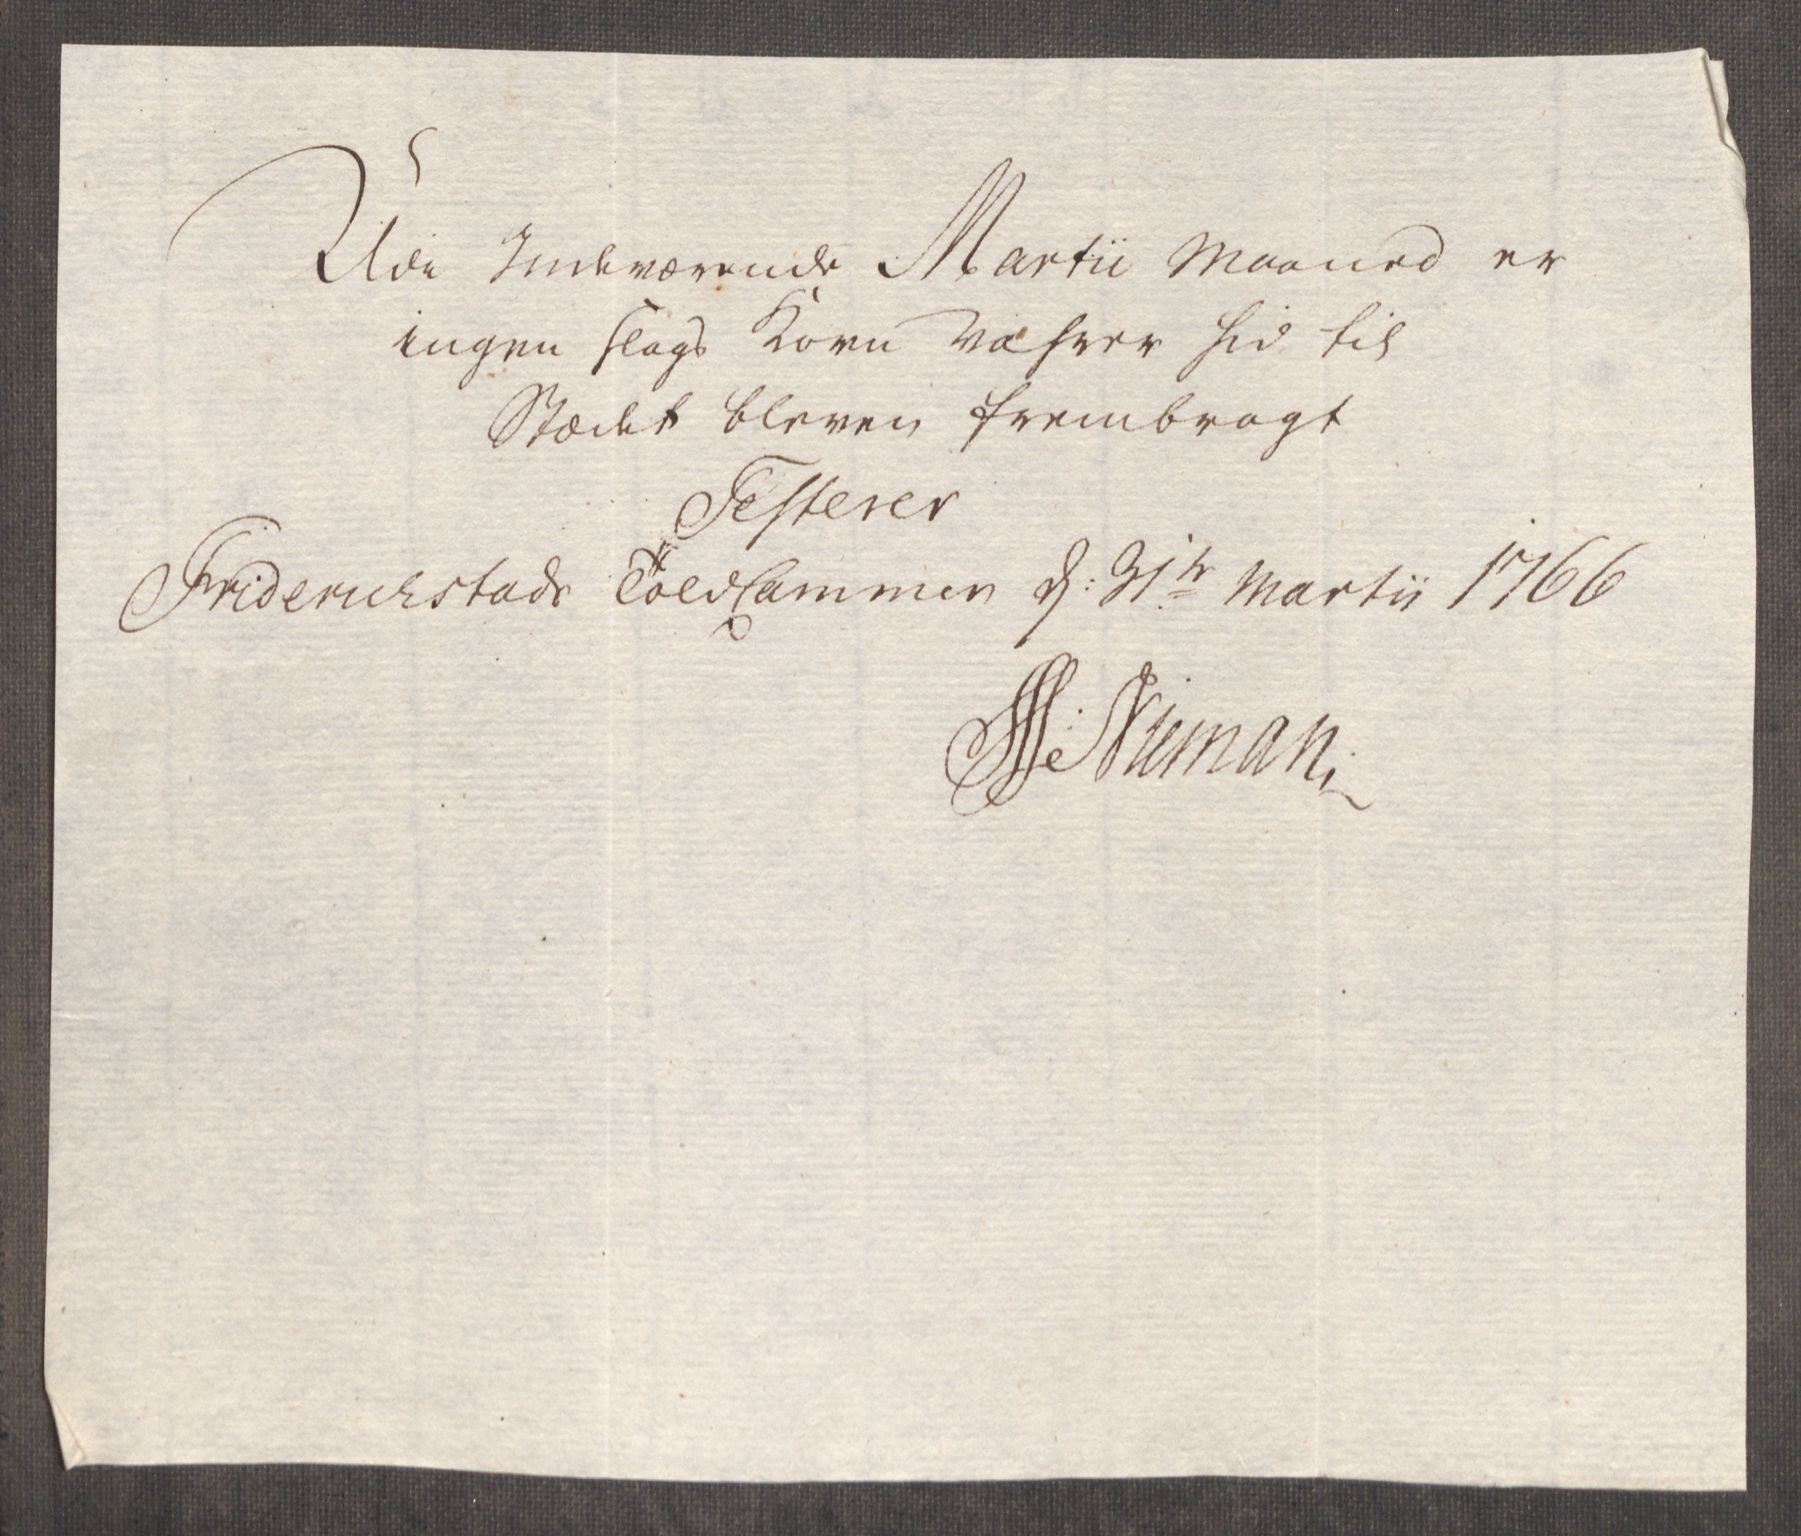 Udi Indeværende Martii Maaned er
ingen slags Korn Vahrer hid til
Stædet bleven frembragt
Testerer
Friderichstads Told Cammer d: 31te Martii 1766
Nieman